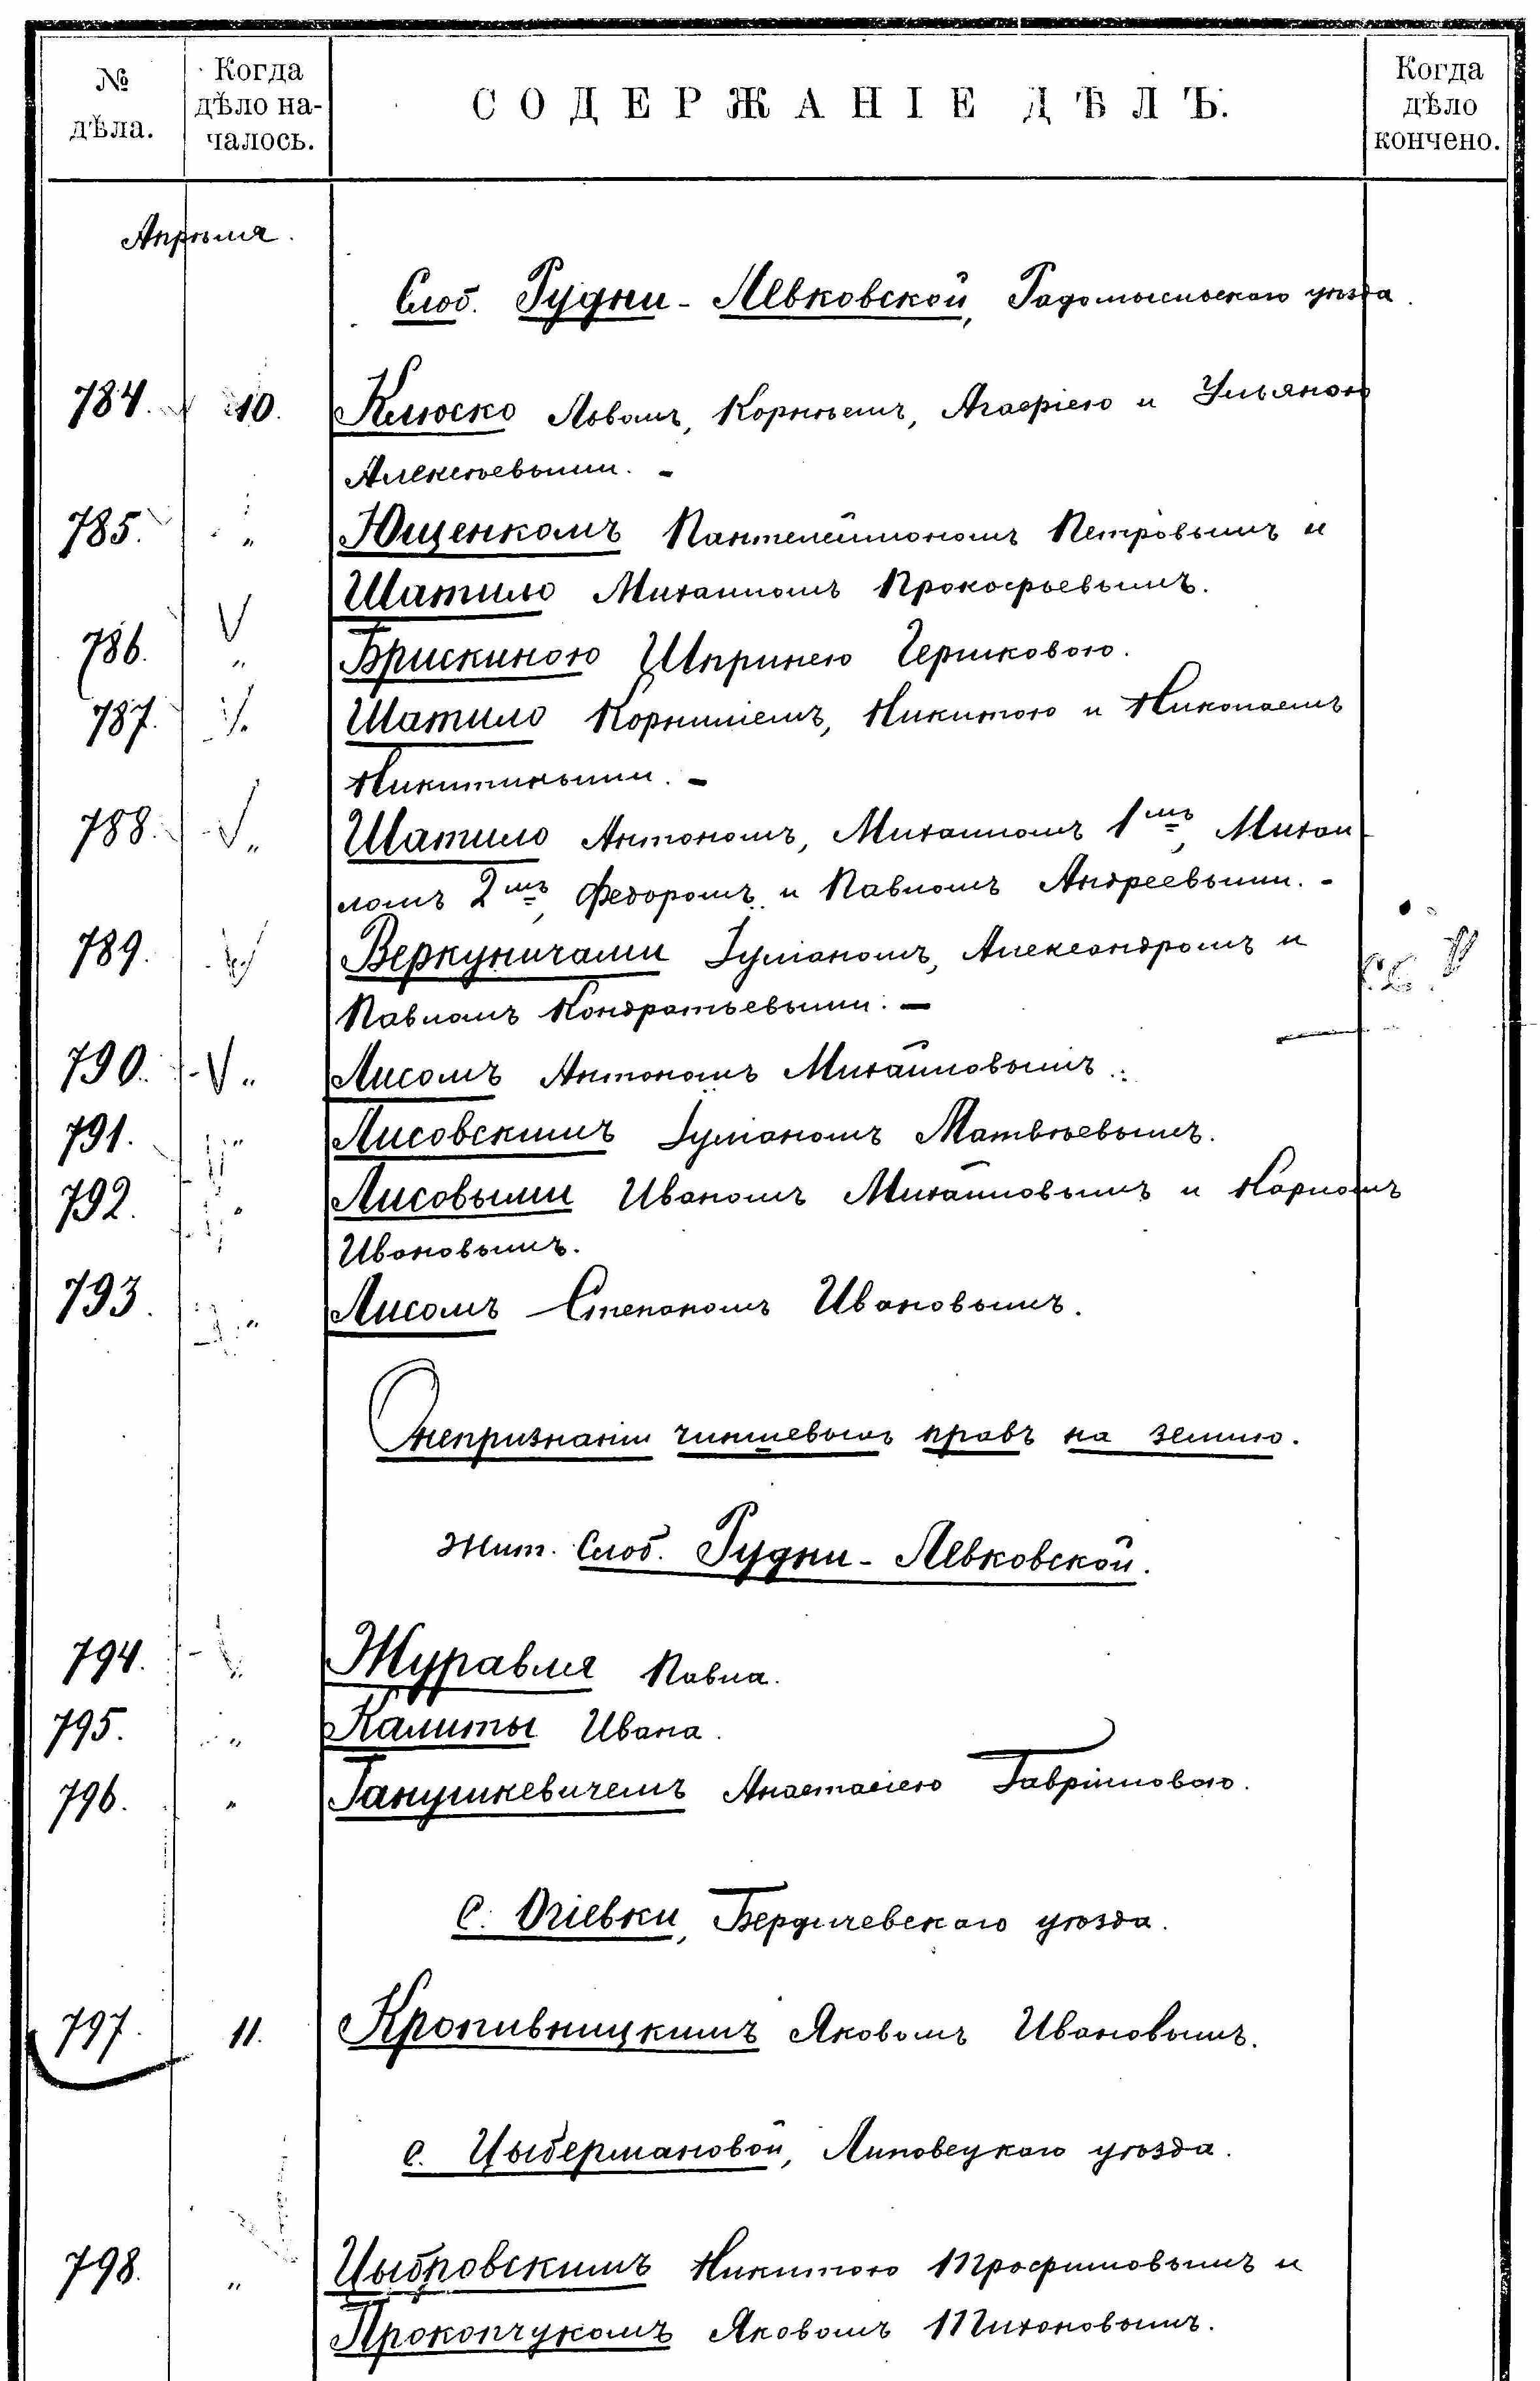 № дѣла.
Когда дѣло на-
чалось.
СОДЕРЖАНІЕ ДѢЛЪ.
Когда дѣло кончено.
Апрѣля.
Слоб. Рудни-Левковской, Радомысльскаго уѣзда.
784. 10. Клюско Львомъ, Корнѣемъ, Агафіею и Ульяною
Алексѣевыми. -
785. " Ющенкомъ Пантелеймономъ Петровымъ и
Шатило Михаиломъ Прокофьевымъ.
786. " Брискиною Шпринею Гершковою.
787. " Шатило Корниліемъ, Никитою и Николаемъ
Никитиными. -
788. " Шатило Антономъ, Михаиломъ 1мъ, Михаи
ломъ 2мъ, Федоромъ и Павломъ Андреевыми. -
789. " Веркуничами Іуліаномъ, Александромъ и
Павломъ Кондратьевыми. -
790. " Лисомъ Антономъ Михайловымъ.
791. " Лисовскимъ Іуліаномъ Матвѣевымъ.
792. " Лисовыми Иваномъ Михайловымъ и Карпомъ
Ивановымъ.
793. " Лисомъ Степаномъ Ивановымъ.
О непризнаніи чиншевыхъ правъ на землю.
Жит. Слоб. Рудни-Левковской.
794. " Журавля Павла.
795. " Калиты Ивана.
796. " Ганушкевичемъ Анастасіею Гавріиловою.
С. Огіевки, Бердичевскаго уѣзда.
797. 11. Кропивницкимъ Яковомъ Ивановымъ.
с. Цыбермановой, Липовецкаго уѣзда.
798. " Цыбровскимъ Никитою Трофимовымъ и
Прокопчукомъ Яковомъ Тихоновымъ.